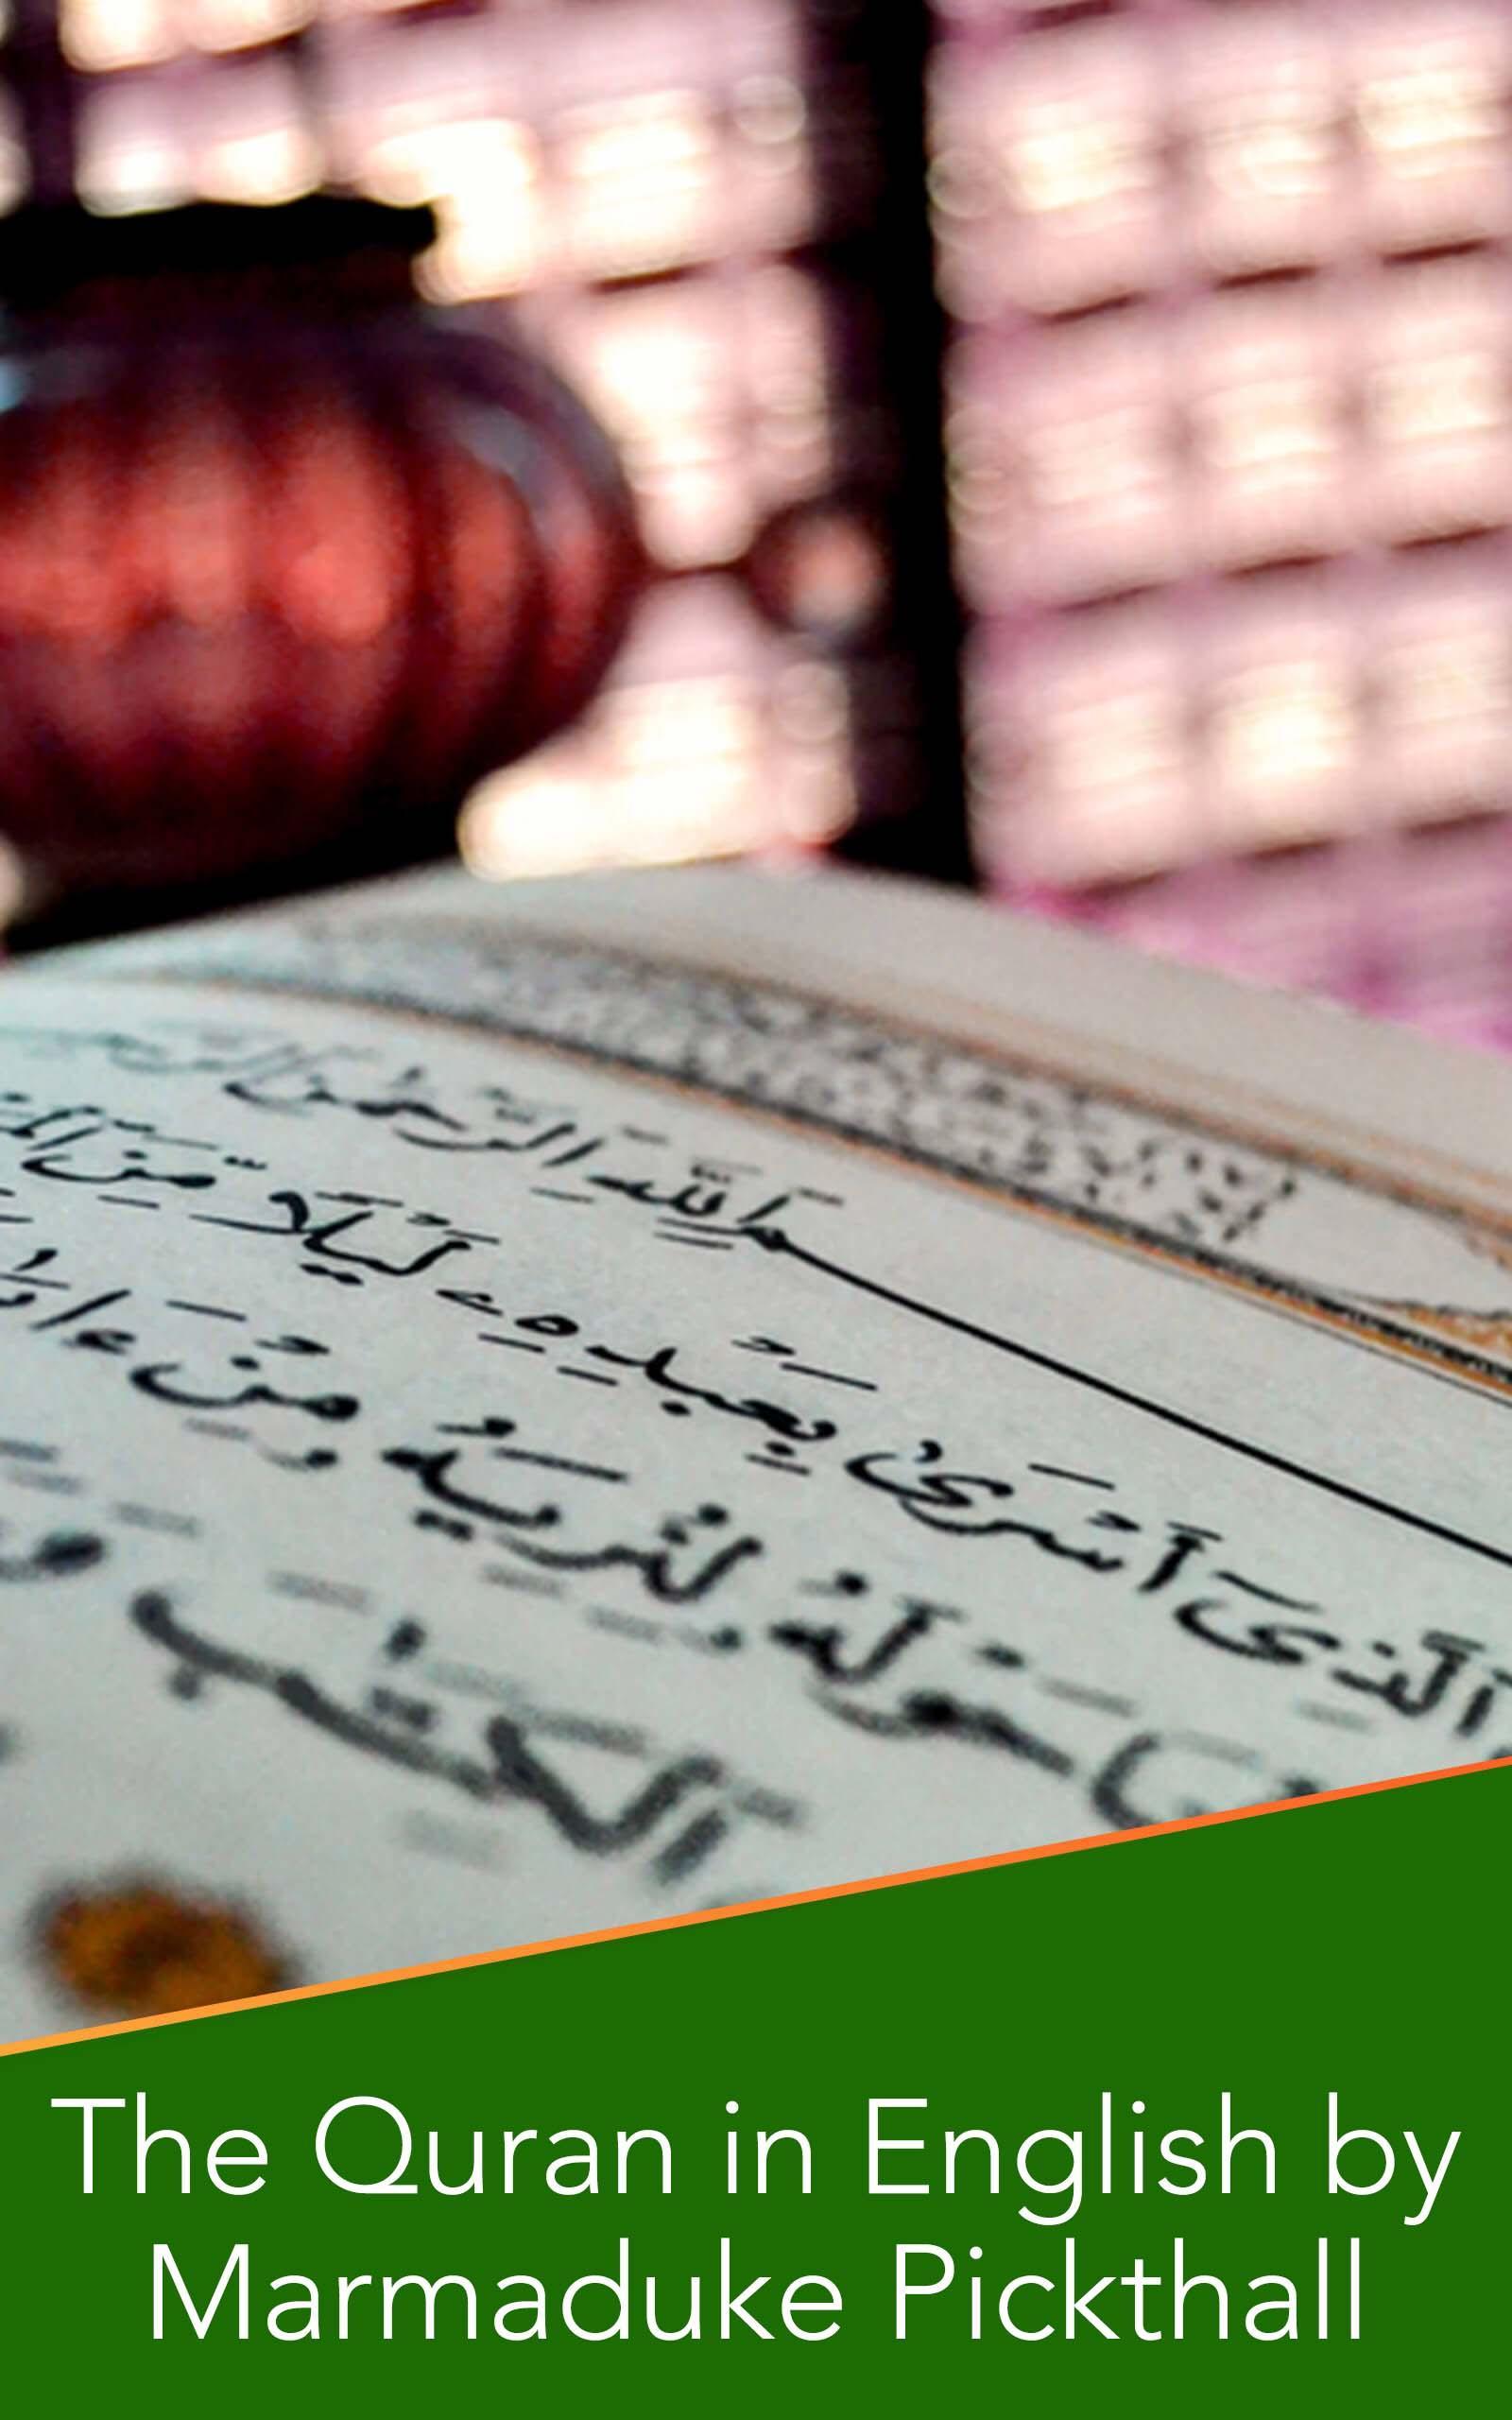 ٱللَّهِ ٱلرَّحْمَٰنِ
ٱلَّذِىٓ أَسْرَىٰ بِعَبْدِهِۦ لَيْلًا مِّنَ
حَوْلَهُۥ لِنُرِيَهُۥ مِنْ
ٱلْكِتَٰبَ
The Quran in English by
Marmaduke Pickthall